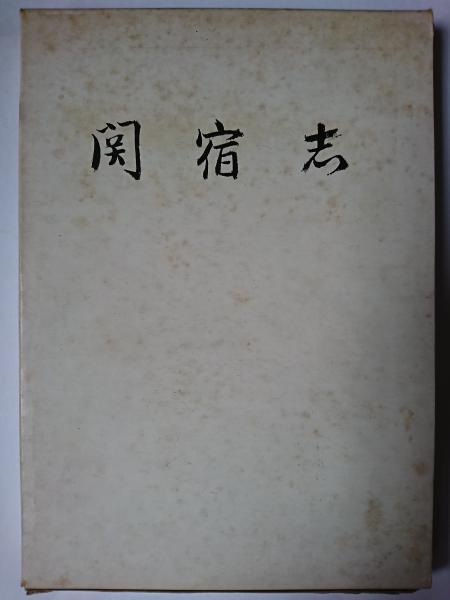 関宿志